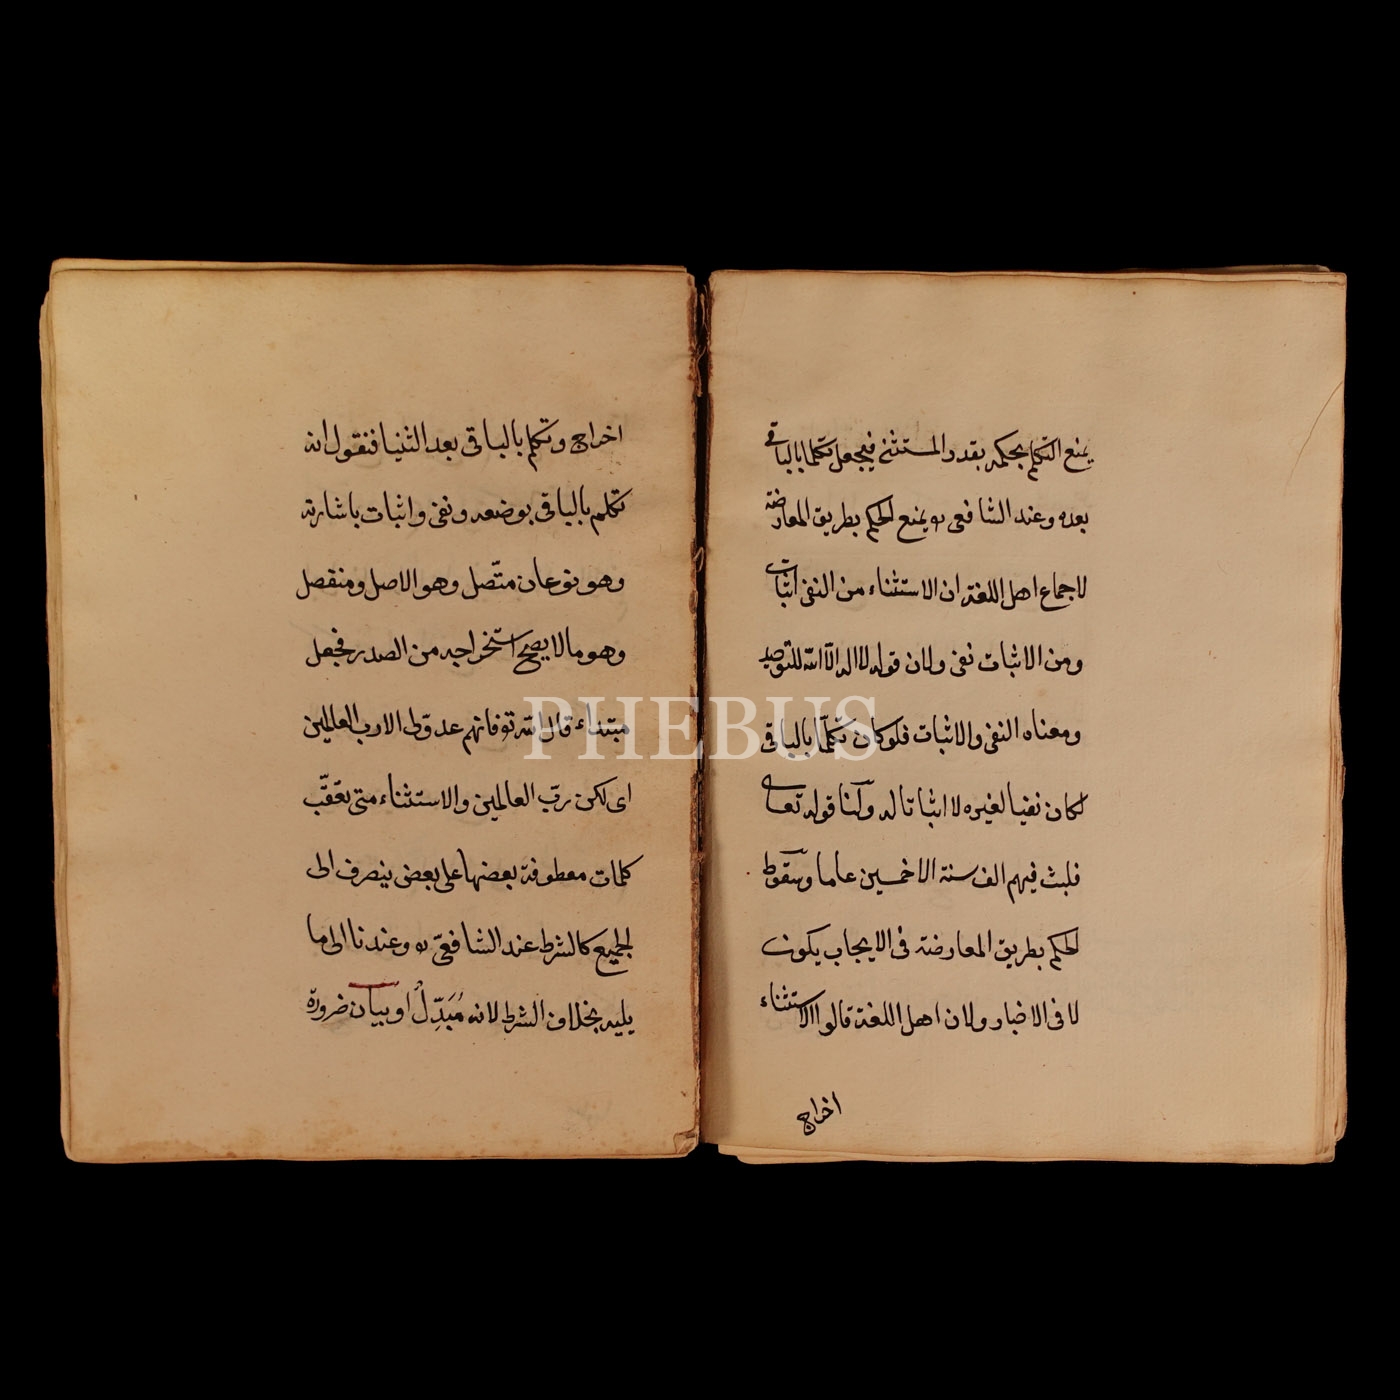 يمنع التكلم بحكمه بقدر المستثنى فيجعل تكلما بالباقى
بعده وعند الشافعى ره يمنع الحكم بطريق المعارضة
لاجماع اهل اللغة ان الاستثناء من النفى اثبات
ومن الاثبات نفى ولان قوله لا اله الا الله للتوحيد
ومعناه النفى والاثبات فلو كان تكلّما بالباقى
لكان نفيا لغيره لا اثباتا له ولنا قوله تعالى
فلبث فيهم الف سنة الا خمسين عاما وسقوط
الحكم بطريق المعارضة فى الايجاب يكون
لا فى الاخبار ولان اهل اللغة قالوا الاستثناء
اخراج
اخراج وتكلم بالباقى بعد الثنيا فنقول انه
تكلم بالباقى بوضعه ونفى واثبات باشارته
وهو نوعان متّصل وهو الاصل ومنفصل
وهو ما لا يصح استخراجه من الصدر فجعل
مبتداء قال الله تع فانهم عدوّ لى الا رب العالمين
اى لكن ربّ العالمين والاستثناء متى تعقّب
كلمات معطوفة بعضها على بعض ينصرف الى
الجميع كالشرط عند الشافعىّ ره وعندنا الى ما
يليه بخلاف الشرط لانه مُبَدِّلٌ او بيان ضرورة
PHEBUS